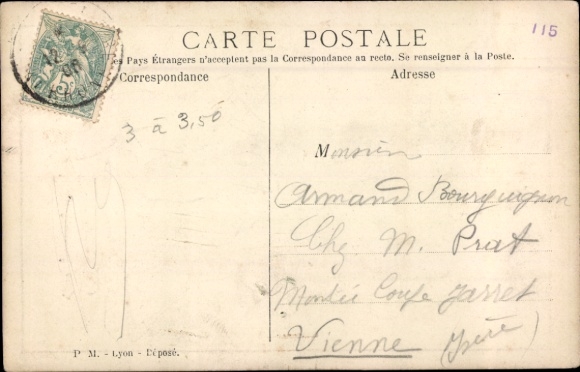 115
CARTE POSTALE
es Pays Étrangers n'acceptent pas la Correspondance au recto. Se renseigner à la Poste.
Correspondance
Adresse
3 à 3,50
Monsieur
Armand Bourguignon
Chez M. Prat
Montée Coupe Jarret
Vienne (Isère)
P. M. - Lyon - Déposé.